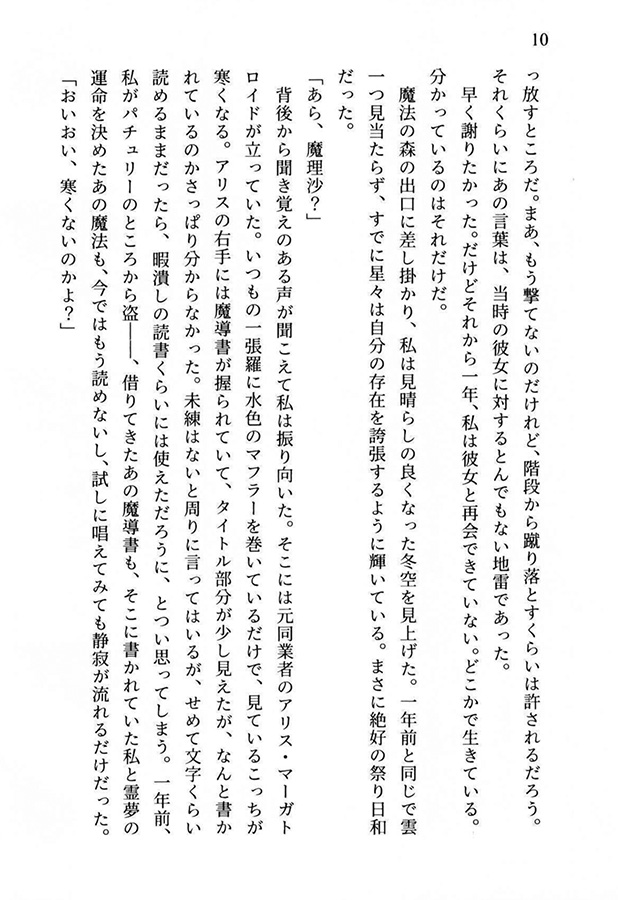 10
っ放すところだ。まあ、もう撃てないのだけれど、階段から蹴り落とすくらいは許されるだろう。
それくらいにあの言葉は、当時の彼女に対するとんでもない地雷であった。
早く謝りたかった。だけどそれから一年、私は彼女と再会できていない。どこかで生きている。
分かっているのはそれだけだ。
魔法の森の出口に差し掛かり、私は見晴らしの良くなった冬空を見上げた。一年前と同じで雲
一つ見当たらず、すでに星々は自分の存在を誇張するように輝いている。まさに絶好の祭り日和
だった。
「あら、魔理沙？」
背後から聞き覚えのある声が聞こえて私は振り向いた。そこには元同業者のアリス・マーガト
ロイドが立っていた。いつもの一張羅に水色のマフラーを巻いているだけで、見ているこっちが
寒くなる。アリスの右手には魔導書が握られていて、タイトル部分が少し見えたが、なんと書か
れているのかさっぱり分からなかった。未練はないと周りに言ってはいるが、せめて文字くらい
読めるままだったら、暇潰しの読書くらいには使えただろうに、とつい思ってしまう。一年前、
私がパチュリーのところから盗――、借りてきたあの魔導書も、そこに書かれていた私と霊夢の
運命を決めたあの魔法も、今ではもう読めないし、試しに唱えてみても静寂が流れるだけだった。
「おいおい、寒くないのかよ？」